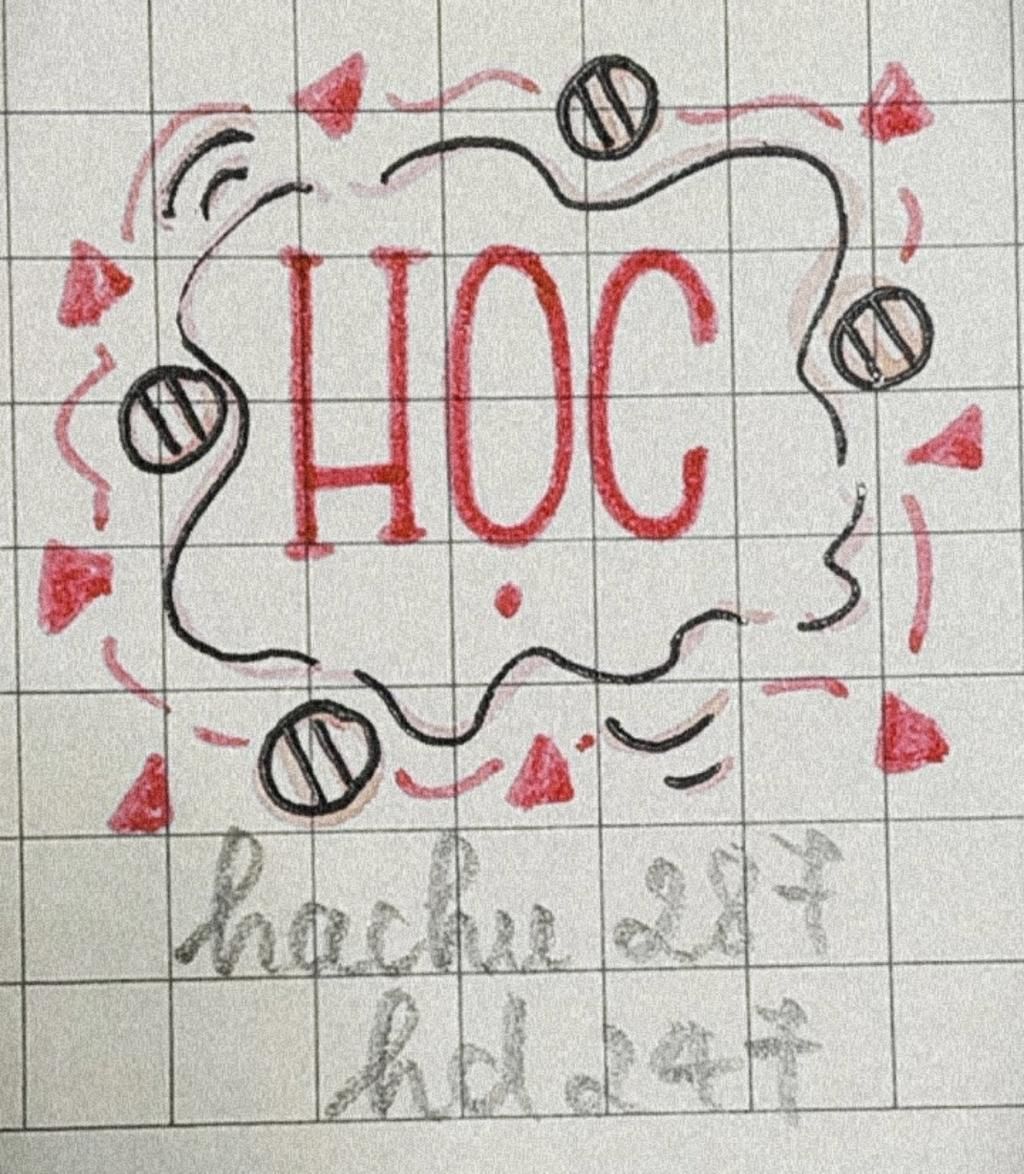 HỌC
hachu 287
hd 247